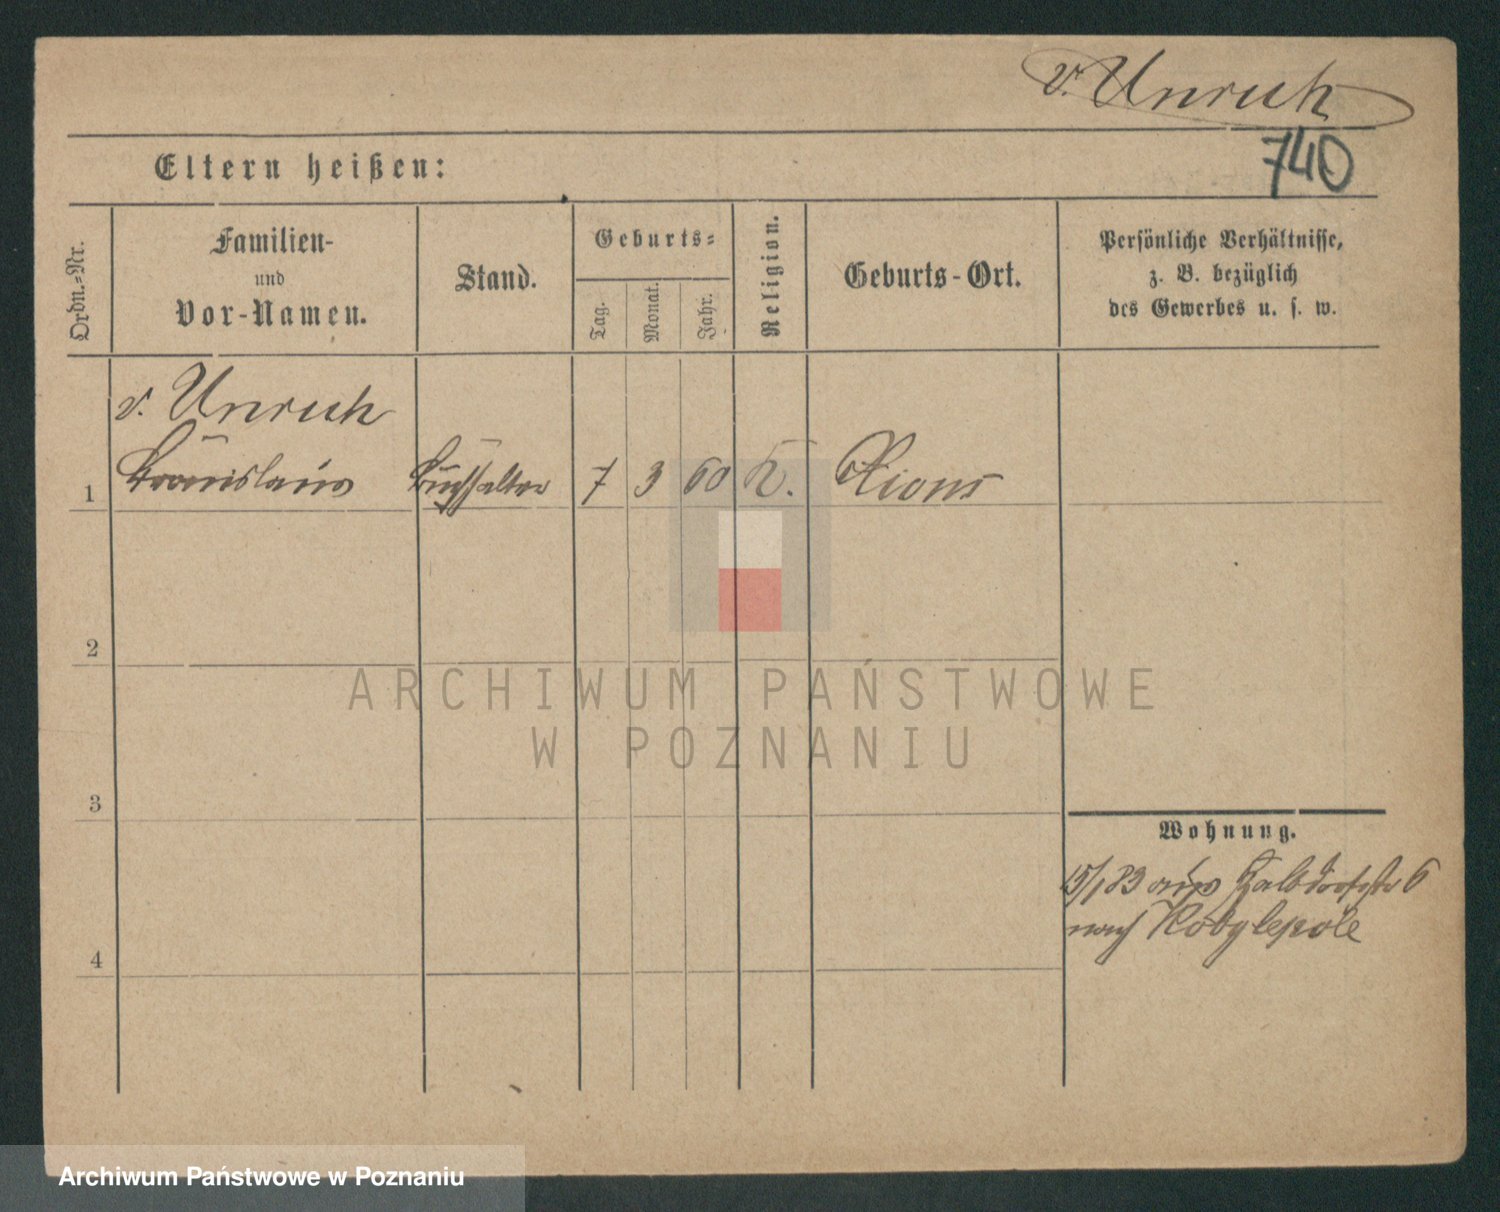 v. Unruh
740
Eltern heißen:
Ordn.-Nr.
Familien-
und
Vor-Namen.
Stand.
Geburts-
Tag.
Monat.
Jahr.
Religion.
Geburts-Ort.
Persönliche Verhältnisse,
z. B. bezüglich
des Gewerbes u. s. w.
v. Unruh
1 Bronislaus Buchhalter 7 3 60 K. Xions
2
ARCHIWUM PAŃSTWOWE
W POZNANIU
3
Wohnung.
15/1 83 aus Halbdorfstr 6
nach Kobylepole
4
Archiwum Państwowe w Poznaniu